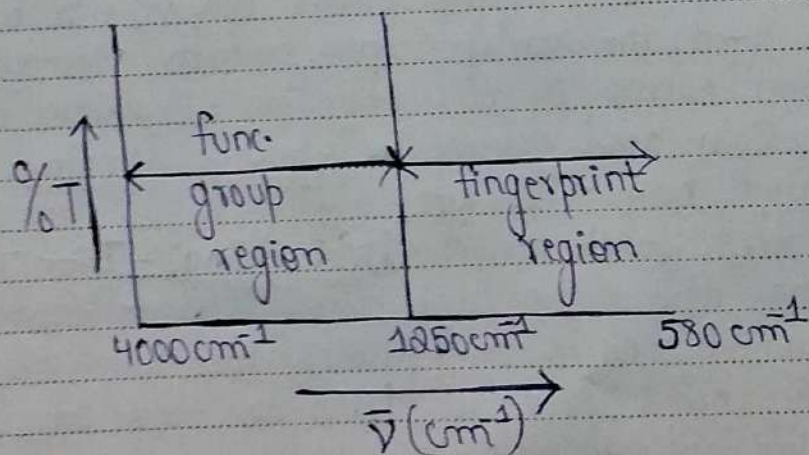 func.
group
region
fingerprint
region
%T
4000cm⁻¹
1250cm⁻¹
580cm⁻¹
ν̄(cm⁻¹)